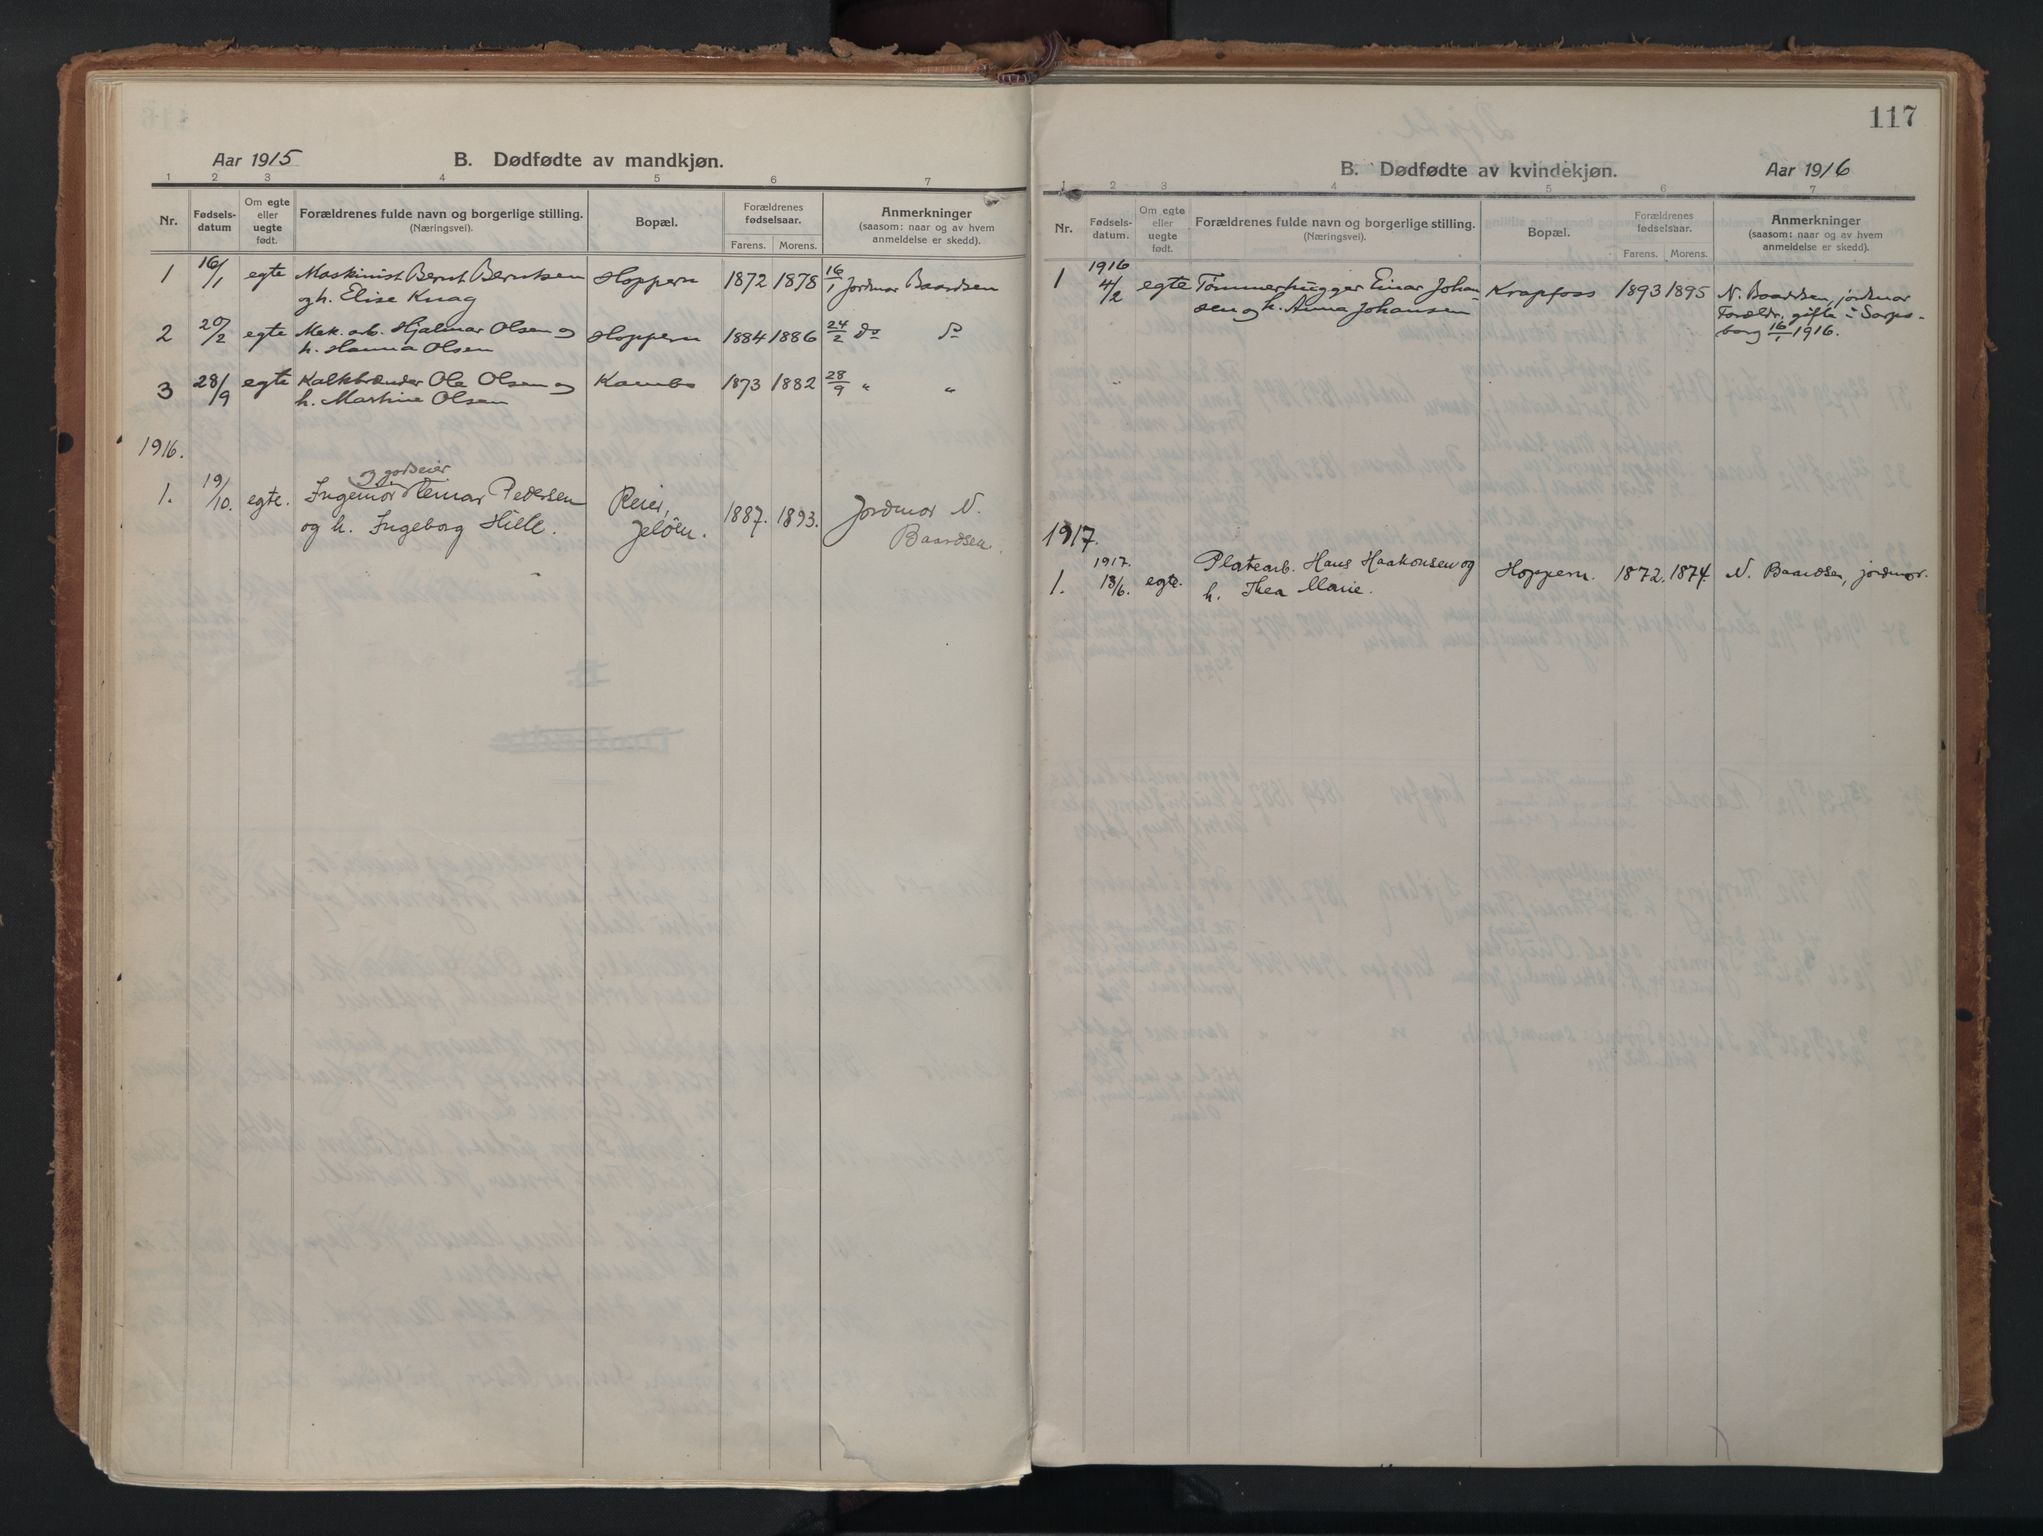 Aar 1915
B. Dødfødte av mandkjøn.
1 2 3 4 5 6 7
Nr. Fødsels-datum Om egte eller uegte født. Forældrenes fulde navn og borgerlige stilling. (Næringsvei). Bopæl. Forældrenes fødselsaar. Farens. Morens. Anmerkninger (saasom: naar og av hvem anmeldelse er skedd).
1 16/1 egte Maskinist Bernt Berntsen Hoppern 1872 1878 16/1 Jordmor Baardsen
og h. Elise Knag
2 20/2 egte Mek. arb. Hjalmar Olsen og Hoppern 1884 1886 24/2 do do
h. Hanna Olsen
3 28/9 egte Kalkbrænder Ole Olsen og Kambo 1873 1882 28/9 " "
h. Martine Olsen
1916.
og godseier
1. 19/10. egte. Ingeniør Reinar Pedersen Reier, 1887. 1893. Jordmor N.
og h. Ingeborg Hille. Jeløen. Baardsen.
117
B. Dødfødte av kvindekjøn.
Aar 1916
1 2 3 4 5 6 7
Nr. Fødsels-datum. Om egte eller uegte født. Forældrenes fulde navn og borgerlige stilling. (Næringsvei). Bopæl. Forældrenes fødselsaar. Farens. Morens. Anmerkninger (saasom: naar og av hvem anmeldelse er skedd).
1916
1 4/2 egte Tømmerhugger Einar Johan- Krapfoss 1893 1895 N. Baardsen, jordmor
sen og h. Anna Johansen Forældr. gifte i Sarps-
borg 16/1 1916.
1917.
1917.
1. 13/6. egte. Platearb. Hans Haakonsen og Hoppern. 1872. 1874. N. Baardsen, jordmor.
h. Thea Marie.